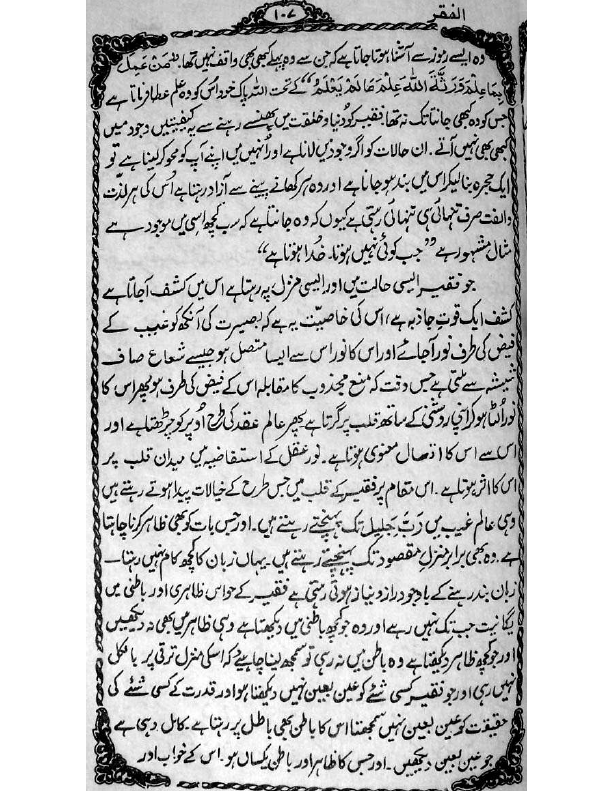 الفقر
۱۰۷
وہ ایسے رموز سے آشنا ہوتا جاتا ہے کہ جن سے وہ پہلے کبھی بھی واقف نہیں تھا "مَنْ عَمِلَ
بِمَا عَلِمَ وَرَّثَهُ اللهُ عِلْمَ مَا لَمْ يَعْلَمْ" کے تحت اللہ پاک خود اُس کو وہ علم عطا فرماتا ہے
جس کو وہ کبھی جانتا تک نہ تھا، فقیر کو دُنیا و خلقت میں پھنسے رہنے سے یہ کیفیتیں وجود میں
کبھی بھی نہیں آتے۔ ان حالات کو اگر وجود میں لانا ہے اور اُنہیں میں اپنے آپ کو محو کر لینا ہے تو
ایک حجرہ بنا لیکر اس میں بند ہو جانا ہے اور وہ ہر کھانے پینے سے آزاد رہتا ہے اُس کی ہر لذت
والفت صرف تنہائی ہی تنہائی رہتی ہے کیوں کہ وہ جانتا ہے کہ سب کچھ اسی میں موجود ہے
مثال مشہور ہے "جب کوئی نہیں ہوتا۔ خدا ہوتا ہے"
جو فقیر ایسی حالت میں اور ایسی منزل پہ رہتا ہے اس میں کشف آجاتا ہے
کشف ایک قوتِ جاذبہ ہے، اس کی خاصیت یہ ہے کہ بصیرت کی آنکھ کو غیب کے
فیض کی طرف نور آجائے اور اس کا نور اس سے ایسا متصل ہو جیسے شعاع صاف
شیشہ سے ملتی ہے جس وقت کہ منبع مجذوب کا مقابلہ اس کے فیض کی طرف ہو پھر اس کا
نور اُلٹا ہو کر اپنی روشنی کے ساتھ قلب پر گرتا ہے پھر عالم عقد کی طرح اُوپر کو چڑھتا ہے اور
اس سے اس کا اتصال معنوی ہوتا ہے۔ نور عقل کے استفاضیہ میں میدان قلب پر
اس کا اثر ہوتا ہے۔ اس مقام پر فقیر کے قلب میں جس طرح کے خیالات پیدا ہوتے رہتے ہیں
وہی عالم غیب میں رَبِّ جلیل تک پہنچتے رہتے ہیں۔ اور جس بات کو بھی ظاہر کرنا چاہتا
ہے۔ وہ بھی برابر منزل مقصود تک پہنچتے رہتے ہیں۔ یہاں زبان کا کچھ کام نہیں رہتا۔
زبان بند رہنے کے باوجود راز و نیاز ہوتی رہتی ہے فقیر کے حواس ظاہری اور باطنی میں
یگانیت جب تک نہیں رہے اور وہ جو کچھ باطنی میں دیکھتا ہے وہی ظاہر میں بھی نہ دیکھیں
اور جو کچھ ظاہر دیکھتا ہے وہ باطن میں نہ رہی تو سمجھ لینا چاہئیے کہ اسکی منزل ترقی پر بالکل
نہیں رہی اور جو فقیر کسی شئے کو عین بعین نہیں دیکھتا ہو اور قدرت کے کسی شئے کی
حقیقت کو عین بعین نہیں سمجھتا اس کا باطن بھی باطل پر رہتا ہے۔ کامل وہی ہے
جو عین بعین دیکھیں۔ اور جس کا ظاہر اور باطن یکساں ہو۔ اس کے خواب اور